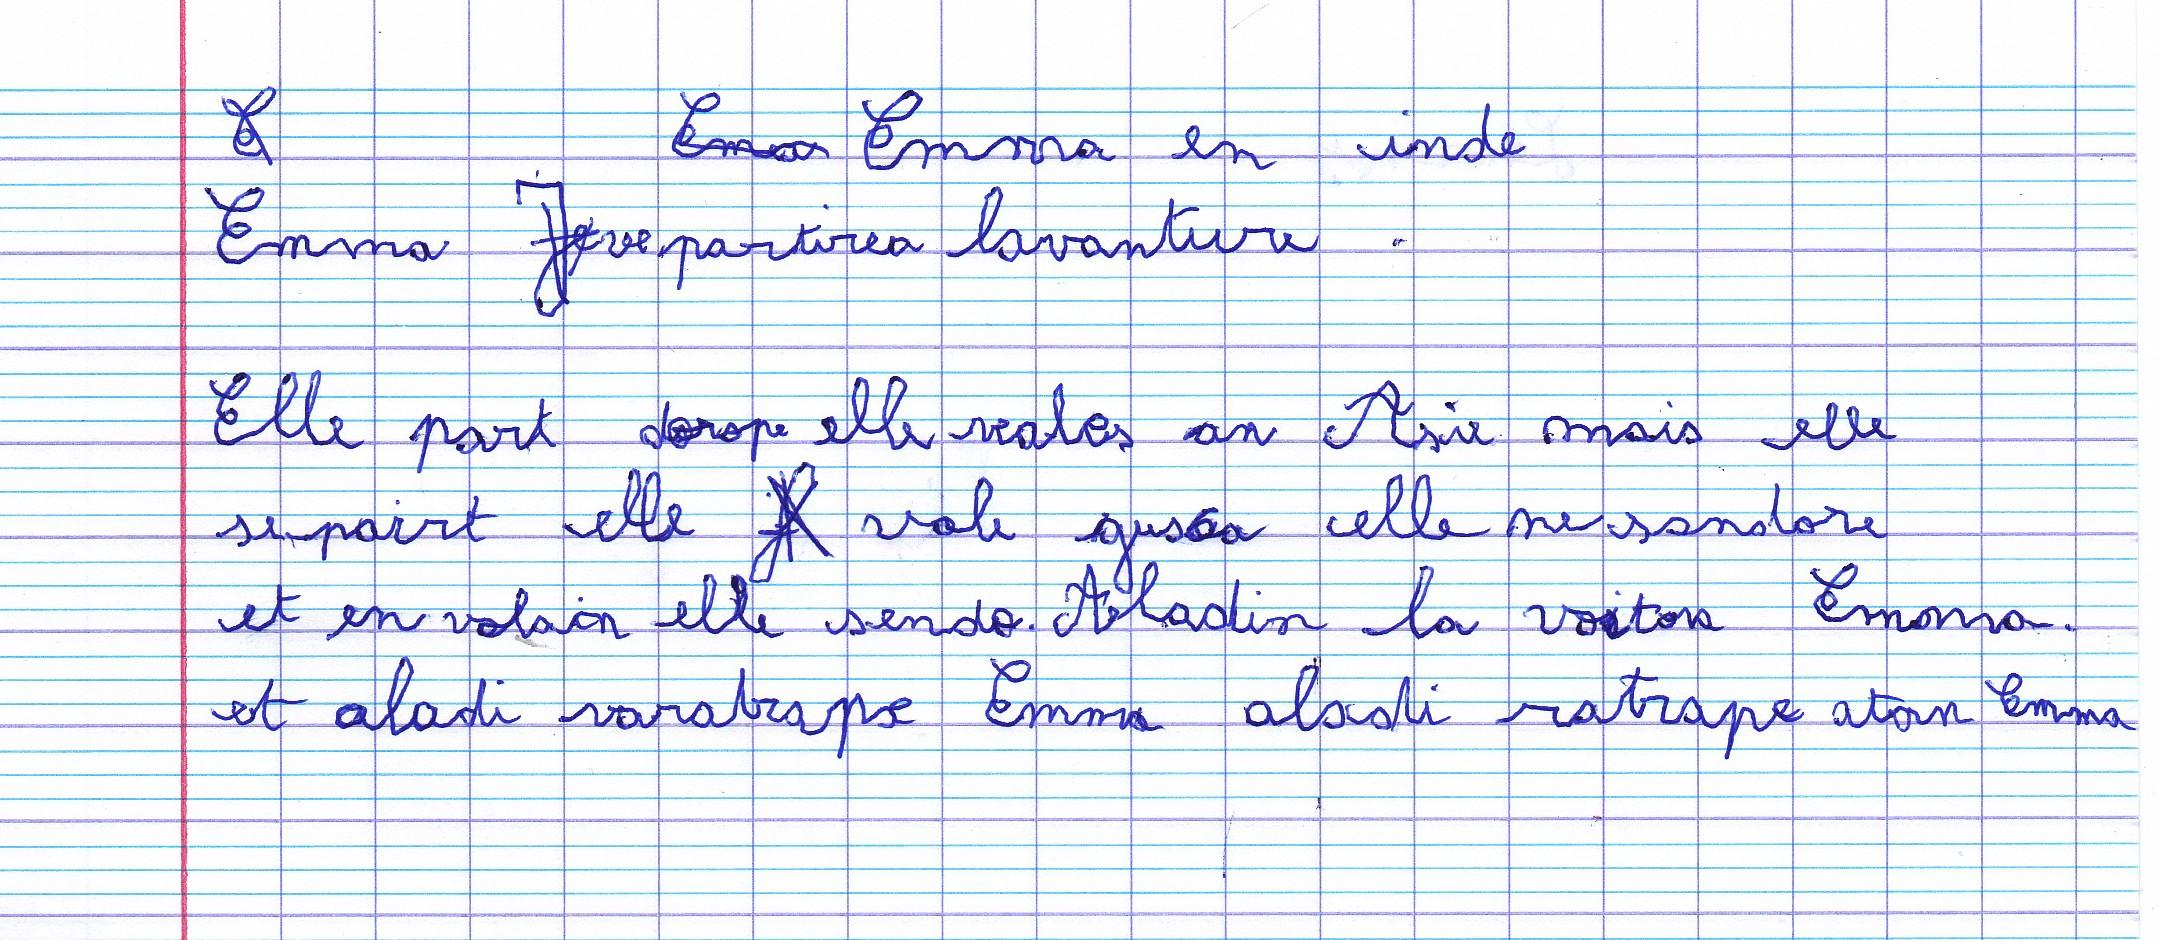 Emma en inde
Emma Je ve partirea lavanture .
Elle part dorope elle vales an Asie mais elle
se pairt elle vole gusca celle ne sandore
et en volain elle sendo. Aladin la voiton Emma.
et aladi varatrape Emma aladi ratrape aton Emma